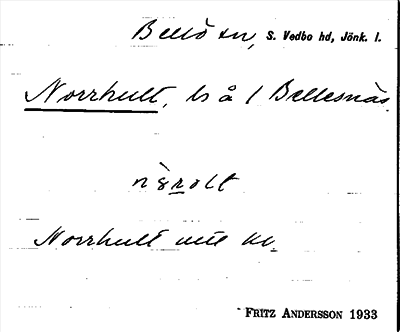 Bellö sn, S. Vedbo hd, Jönk. l.
Norrhult, ls å 1 Bellesnäs
Norrhult
FRITZ ANDERSSON 1933